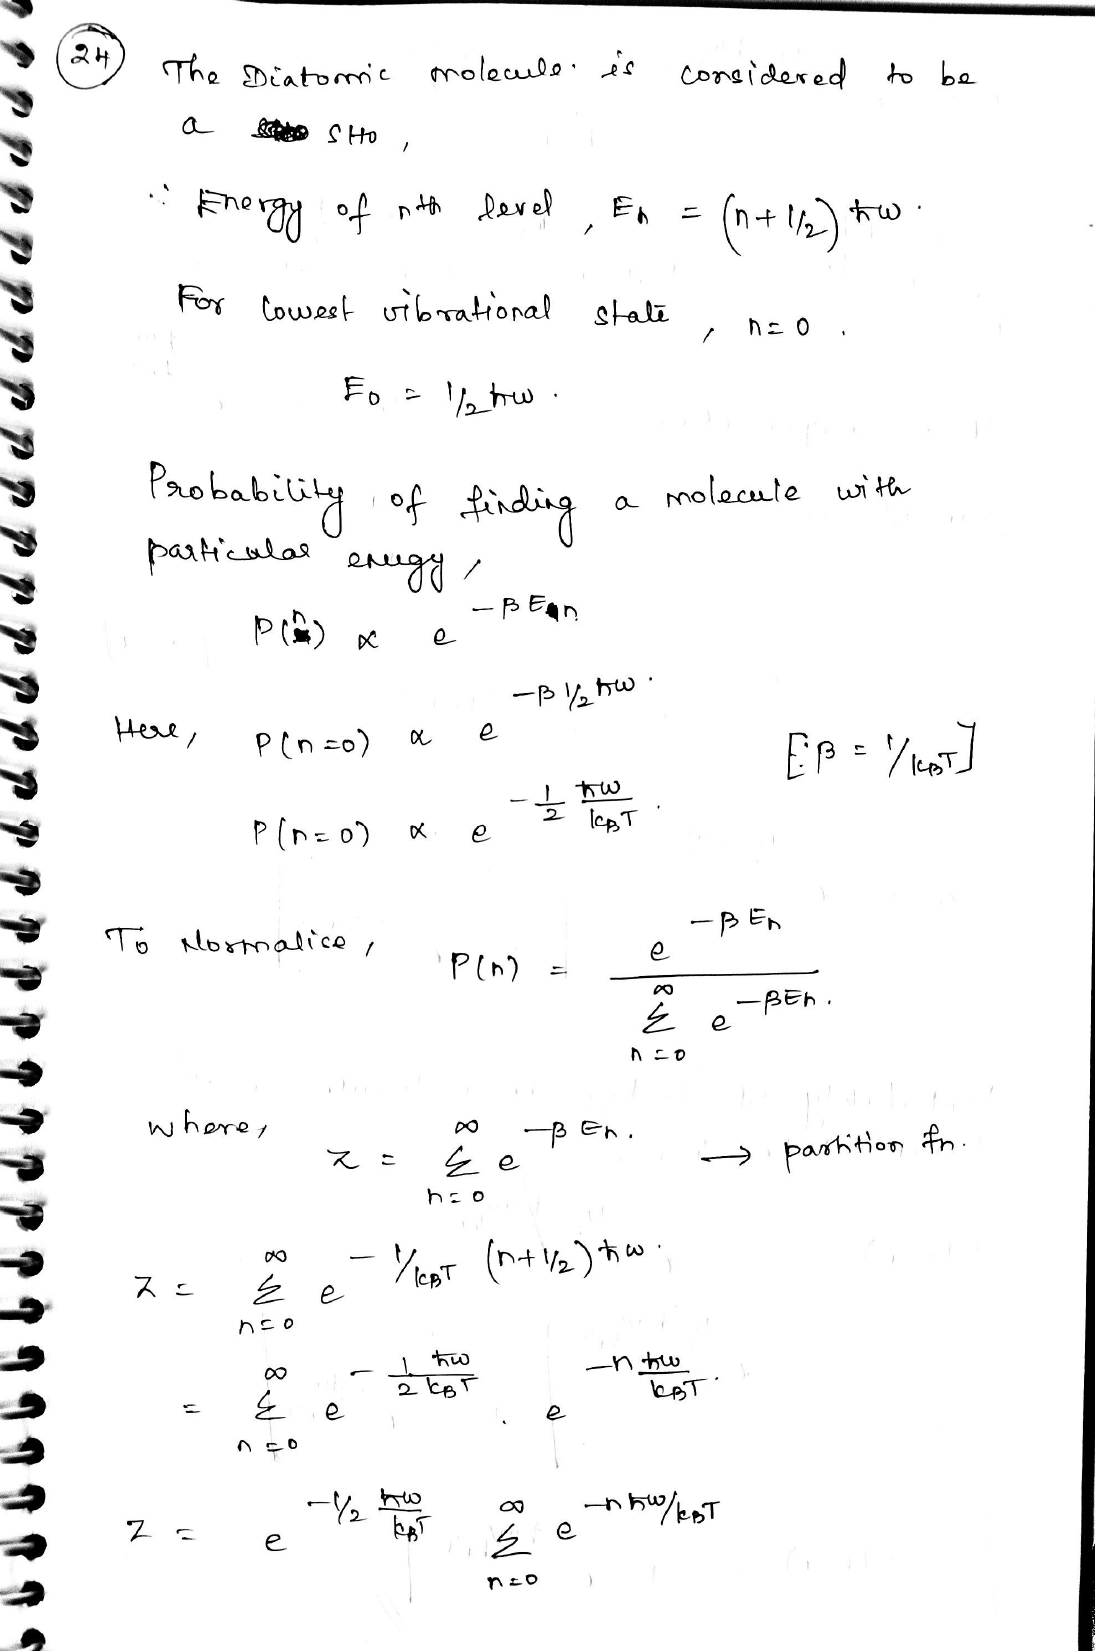 24
The Diatomic molecule is considered to be
a SHO,
∴ Energy of nth level, En = (n+1/2) ħω.
For lowest vibrational state, n=0.
E0 = 1/2 ħω.
Probability of finding a molecule with
particular enegy,
P(n) ∝ e^{-βEn}
Here, P(n=0) ∝ e^{-β 1/2 ħω}. [∵ β = 1/kBT]
P(n=0) ∝ e^{-1/2 ħω/kBT}.
To Normalice, P(n) = e^{-βEn} / Σ_{n=0}^{∞} e^{-βEn}.
where, Z = Σ_{n=0}^{∞} e^{-βEn}. → partition fn.
Z = Σ_{n=0}^{∞} e^{-1/kBT (n+1/2) ħω}.
= Σ_{n=0}^{∞} e^{-1/2 ħω/kBT} . e^{-n ħω/kBT}.
Z = e^{-1/2 ħω/kBT} Σ_{n=0}^{∞} e^{-nħω/kBT}